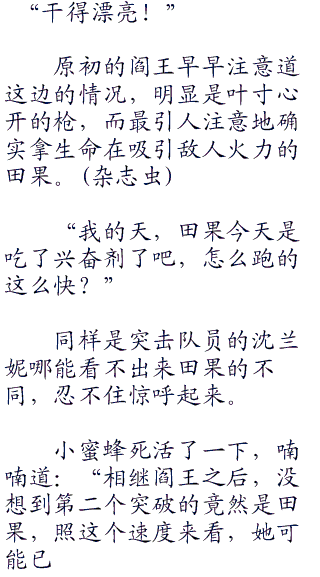 “干得漂亮！”
原初的阎王早早注意道
这边的情况，明显是叶寸心
开的枪，而最引人注意地确
实拿生命在吸引敌人火力的
田果。(杂志虫)
“我的天，田果今天是
吃了兴奋剂了吧，怎么跑的
这么快？”
同样是突击队员的沈兰
妮哪能看不出来田果的不
同，忍不住惊呼起来。
小蜜蜂死活了一下，喃
喃道：“相继阎王之后，没
想到第二个突破的竟然是田
果，照这个速度来看，她可
能已